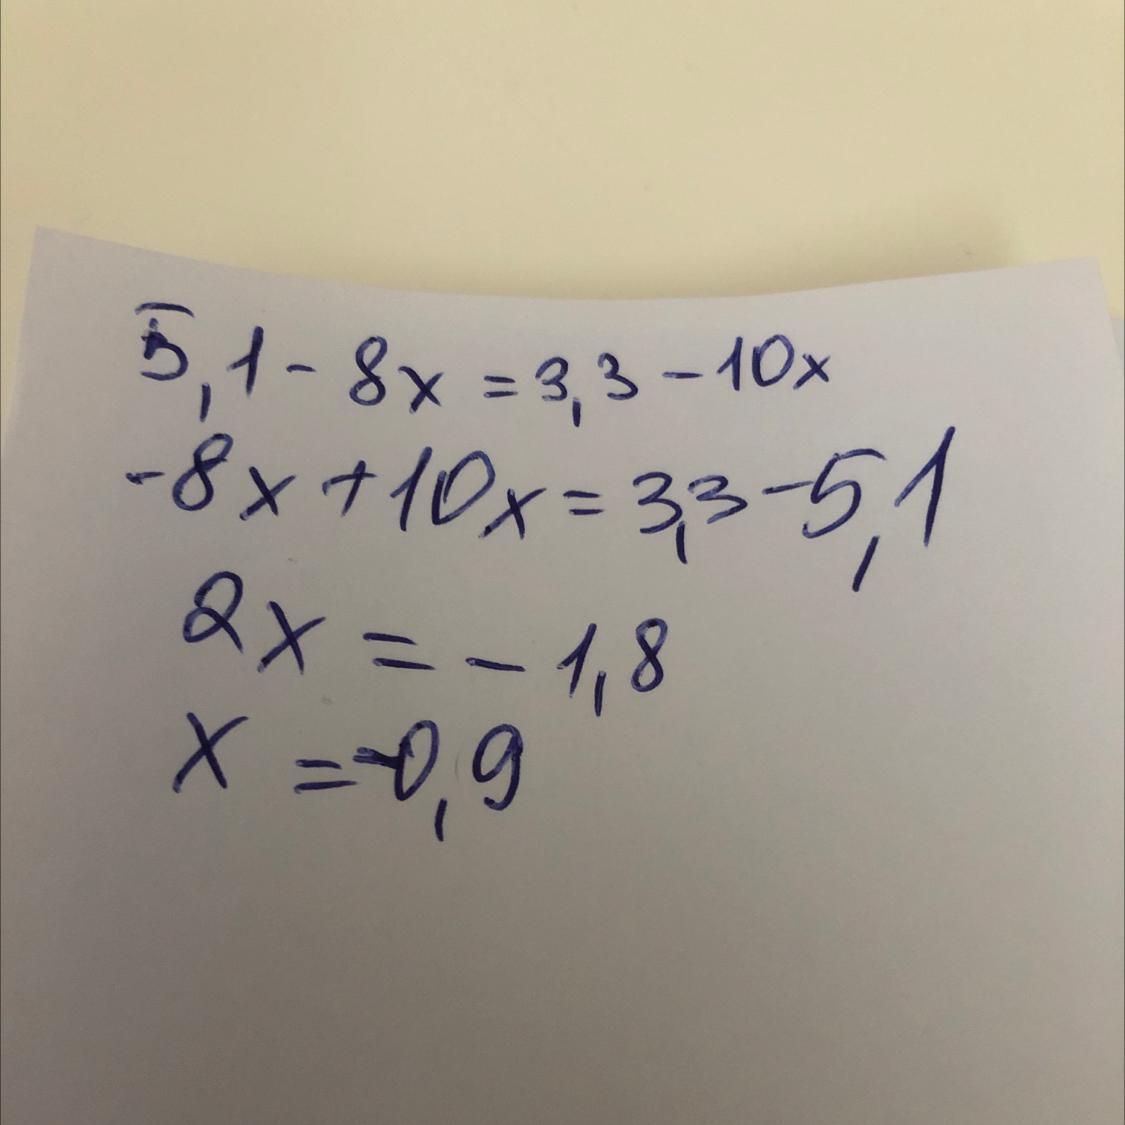 5,1 - 8x = 3,3 - 10x
-8x + 10x = 3,3 - 5,1
2x = - 1,8
x = -0,9